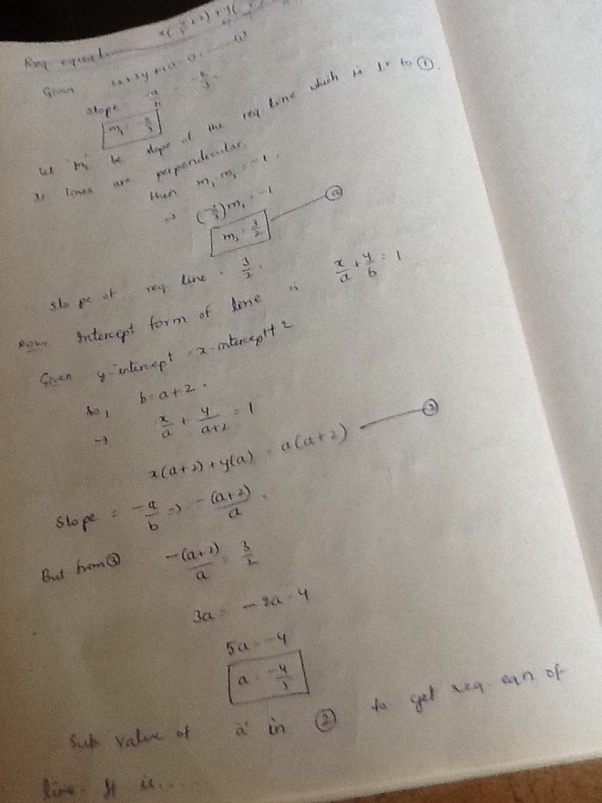 Req equation x( +2)+y(
Given
slope = -a/b = -2/3.
m₁ = -2/3
Let m₂ be slope of the req line which is ⊥r to ①.
If lines are perpendicular.
then m₁ m₂ = -1.
→ (-2/3)m₂ = -1
m₂ = 3/2 ②
slope of req line = 3/2.
Now Intercept form of line is x/a + y/b = 1
Given y-intercept = x-intercept+2
So, b = a+2.
→ x/a + y/a+2 = 1
x(a+2)+y(a) = a(a+2) ③
Slope = -a/b => -(a+2)/a.
But from ② -(a+2)/a = 3/2
3a = -2a-4
5a = -4
a = -4/5
Sub value of 'a' in ② to get req eqn of
line. It is.....